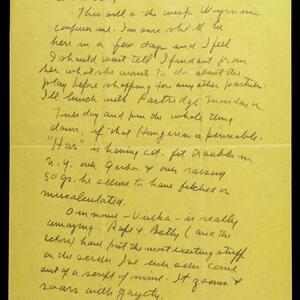 This will o the wisp Wyman
confuses me. I'm sure she'll be
here in a few days and I feel
I should wait till I find out from
her what she wants to do about the
play before shopping for any other partner.
I'll lunch with Partridge Monday or
Tuesday and pin the whole thing
down, if that Hungarian is pinnable.
"Har" is having cat-fit troubles in
N.Y. over Garbo & over raising
50 gs. he seems to have filched or
miscalculated.
Our movie - - is really
amazing. & Betty (and the
actors) have put the most exciting stuff
on the screen I've ever seen come
out of a script of mine. It zooms &
soars with gayety.